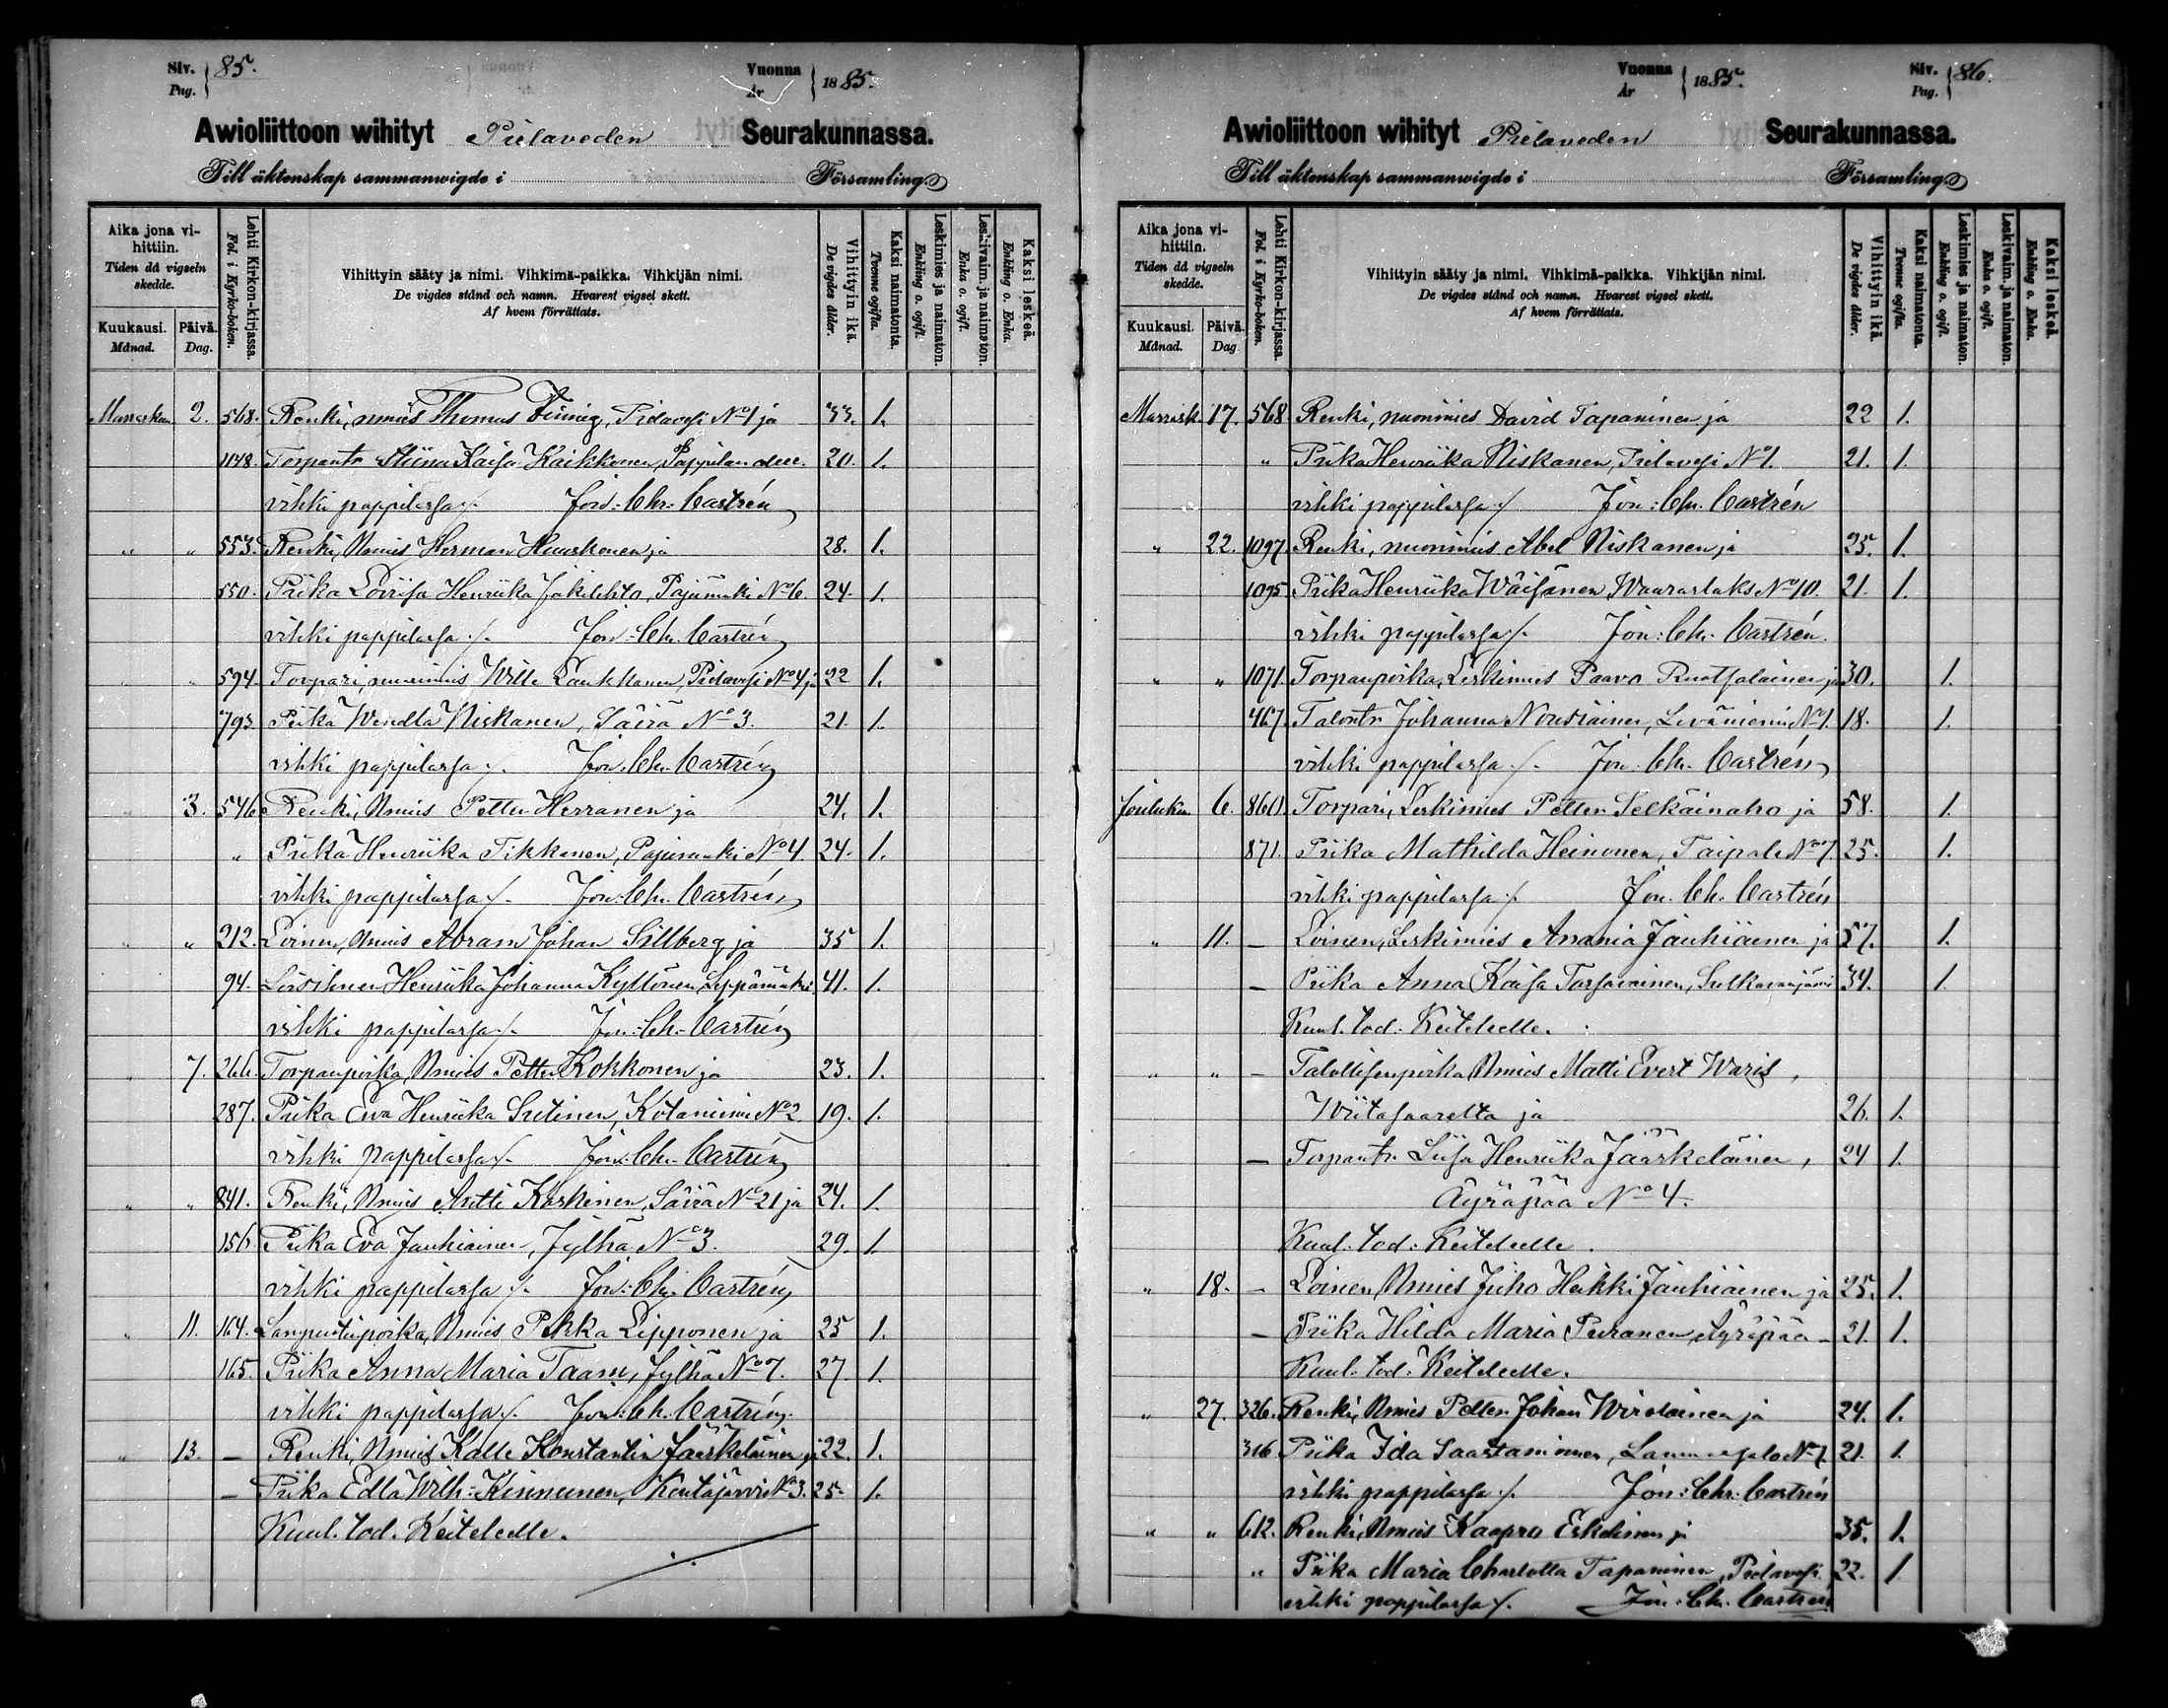 Siv. Pag. 85. Vuonna År 1885.
Awioliittoon wihityt Pielaveden Seurakunnassa.
Till äktenskap sammanwigde i Församling.
Aika jona vihittiin. Tiden då vigseln skedde.
Kuukausi. Månad. Päivä. Dag.
Lehti Kirkon-kirjassa. Fol. i Kyrko-boken.
Vihittyin sääty ja nimi. Vihkimä-paikka. Vihkijän nimi.
De vigdes stånd och namn. Hvarest vigsel skett.
Af hvem förrättats.
Vihittyin ikä. De vigdes ålder.
Kaksi naimatonta. Tvenne ogifta.
Leskimies ja naimaton. Enkling o. ogift.
Leskivaim. ja naimaton. Enka o. ogift.
Kaksi leskeä. Enkling o. Enka.
Marraskuu 2. 568. Renki, nmies Thomas Finnig, Pielavesi No 1 ja 33. 1.
1148. Torpantr Stiina Kaisa Kaikkonen, Pappilan 20. 1.
vihki pappilassa ./. Jon: Chr: Castrén
" " 553. Renki, Nmies Herman Huuskonen ja 28. 1.
550. Piika Lovisa Henriika Jokilehto, Pajumäki No 6. 24. 1.
vihki pappilassa ./. Jon: Chr. Castrén
" " 594. Torpari, nuorimies Wille Laukkanen, Pielavesi No 4 ja 22 1.
793. Piika Wendla Niskanen, Säiä No 3. 21. 1.
vihki pappilassa ./. Jon. Chr. Castrén
" 3. 546 Renki, Nmies Petter Herranen ja 24. 1.
" Piika Henriika Tikkanen, Pajumäki No 4. 24. 1.
vihki pappilassa ./. Jon: Chr. Castrén
" " 212. Loinen, Nmies Abram Johan Sillberg ja 35 1.
94. Loisihmen Henriika Johanna Kyllönen, Leppämäki 41. 1.
vihki pappilassa ./. Jon: Chr: Castrén
" 7. 266. Torpanpoika, Nmies Petter Kokkonen ja 23. 1.
287. Piika Eva Henriika Sutinen, Kotaniemi No 2. 19. 1.
vihki pappilassa ./. Jon. Chr. Castrén
" " 841. Renki, Nmies Antti Karkinen, Säiä No 21 ja 24. 1.
156. Piika Eva Jauhiainen, Jylhä No 3. 29. 1.
vihki pappilassa ./. Jon: Chr. Castrén
" 11. 164. Lampuotipoika, Nmies Pekka Lipponen ja 25 1.
165. Piika Anna Maria Taam, Jylhä No 7. 27. 1.
vihki pappilassa ./. Jon: Chr. Castrén
" 13. — Renki, Nmies Kalle Konstantin Jääskeläinen ja 22. 1.
— Piika Edla Wilh: Kinnunen, Koutajärvi No 3. 25. 1.
Kuul. tod. Keiteleelle.
Vuonna År 1885. Siv. Pag. 86.
Awioliittoon wihityt Pielaveden Seurakunnassa.
Till äktenskap sammanwigde i Församling.
Aika jona vihittiin. Tiden då vigseln skedde.
Kuukausi. Månad. Päivä. Dag
Lehti Kirkon-kirjassa. Fol. i Kyrko-boken.
Vihittyin sääty ja nimi. Vihkimä-paikka. Vihkijän nimi.
De vigdes stånd och namn. Hvarest vigsel skett.
Af hvem förrättats.
Vihittyin ikä. De vigdes ålder.
Kaksi naimatonta. Tvenne ogifta.
Leskimies ja naimaton. Enkling o. ogift.
Leskivaim. ja naimaton. Enka o. ogift.
Kaksi leskeä. Enkling o. Enka.
Marrask. 17. 568 Renki, nuorimies David Tapaninen ja 22 1.
" Piika Henriika Niskanen, Pielavesi No 1. 21. 1.
vihki pappilassa ./. Jon: Chr. Castrén
" 22. 1097. Renki, nuorimies Abel Niskanen ja 25. 1.
1095 Piika Henriika Wäisänen Waaraslaks No 10. 21. 1.
vihki pappilassa ./. Jon: Chr. Castrén.
" " 1071. Torpanpoika, Leskimies Paavo Ruotsalainen ja 30. 1.
467. Talontr. Johanna Nousiainen, Leväniemi No 1. 18. 1.
vihki pappilassa ./. Jon. Chr. Castrén
Jouluku 6. 860. Torpari, Leskimies Petter Selkäinaho ja 58. 1.
871. Piika Mathilda Heinonen, Taipale No 7. 25. 1.
vihki pappilassa ./. Jon. Ch. Castrén
" 11. — Loinen, Leskimies Anania Jauhiainen ja 57. 1.
— Piika Anna Kaisa Tarvainen, Sulkavanjärvi 34. 1.
Kuul. tod. Keiteleelle.
" " — Talollisenpoika, Nmies Matti Evert Waris,
Wiitasaarelta ja 26. 1.
— Torpantr. Liisa Henriika Jääskeläinen, 24 1.
Äyräpää No 4.
Kuul. tod: Keiteleelle.
" 18. — Loinen, Nmies Juho Heikki Jauhiainen ja 25. 1.
— Piika Hilda Maria Puranen, Äyräpää — 21. 1.
Kuul. tod. Keiteleelle.
" 27. 326. Renki, Nmies Petter Johan Wirolainen ja 24. 1.
316 Piika Ida Saastamoinen, Lammassalo No 7. 21. 1.
vihki pappilassa ./. Jon: Chr. Castrén
" " 612. Renki, Nmies Kaapro Eskelinen ja 35. 1.
" Piika Maria Charlotta Tapaninen, Pielavesi. 22. 1
vihki pappilassa ./. Jon: Chr. Castrén